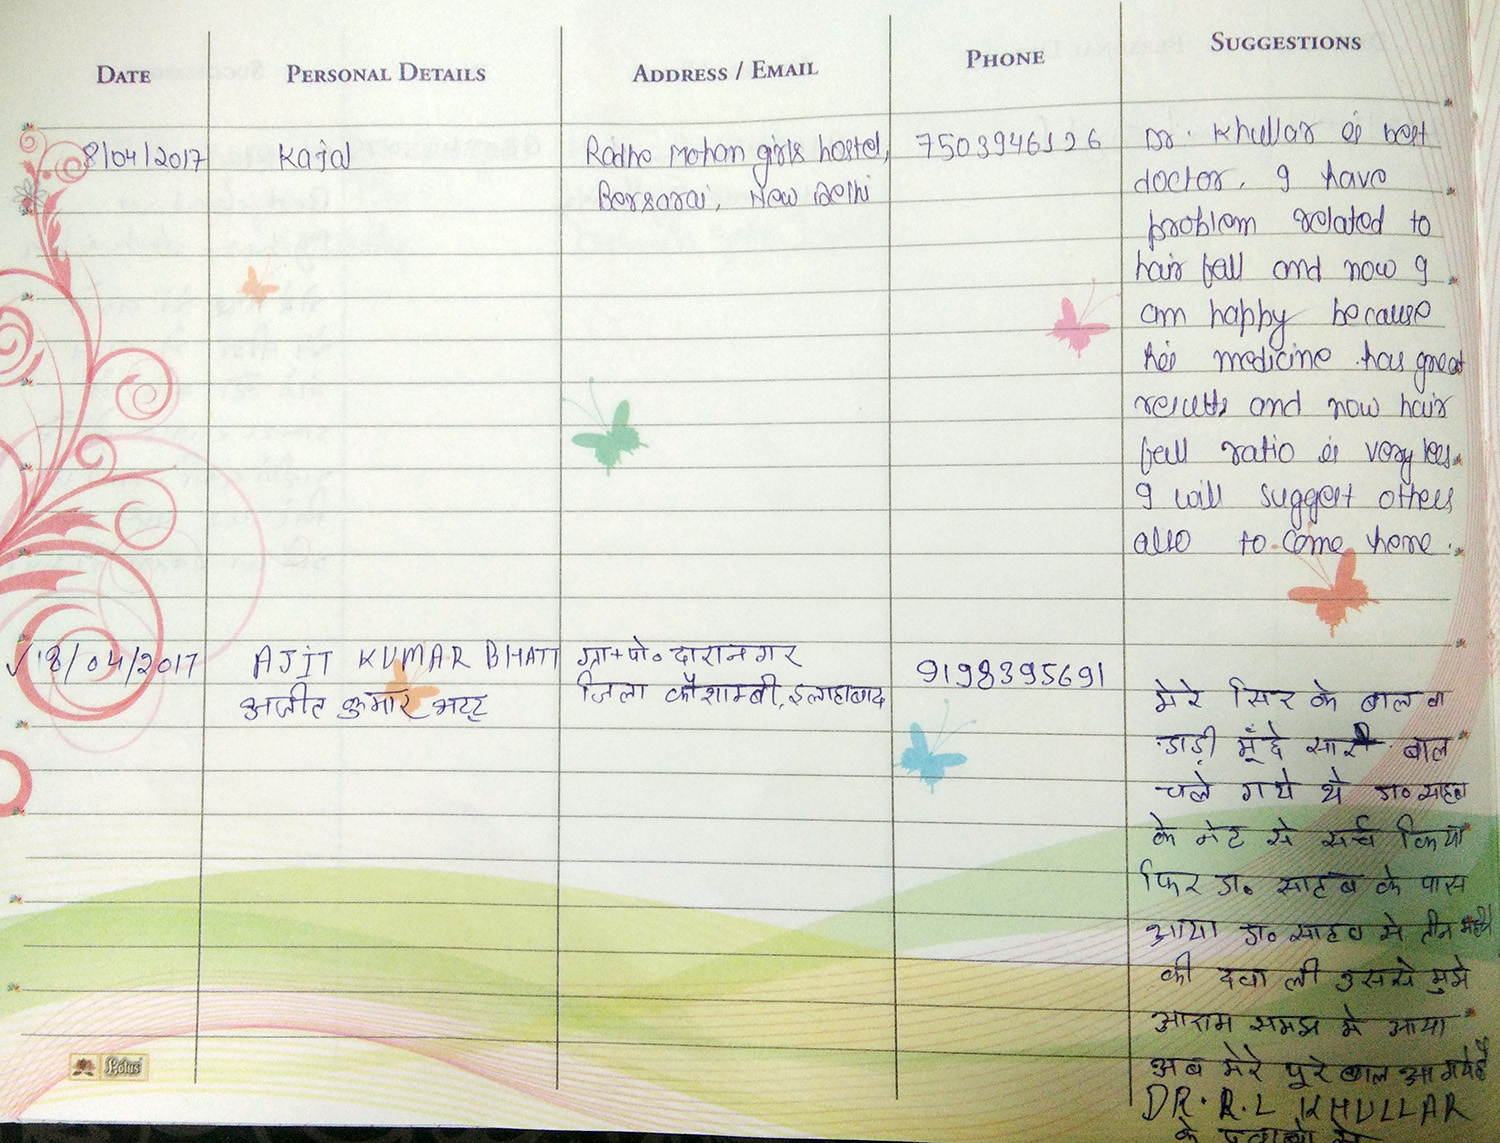 DATE PERSONAL DETAILS ADDRESS / EMAIL PHONE SUGGESTIONS
8/04/2017 Kajal Radhe Mohan girls hostel, 7503946126 Dr. Khullar is best
Bersarai, New Delhi doctor. I have
problem related to
hair fall and now I
am happy because
his medicine has great
results and now hair
fall ratio is very less.
I will suggest others
also to come here.
18/04/2017 AJIT KUMAR BHATT ग्रा+पो० दारानगर 9198395691
अजीत कुमार भट्ट जिला कौशाम्बी, इलाहाबाद मेरे सिर के बाल व
डाड़ी मूँछे सारे बाल
चले गये थे डा० साहब
के नेट से सर्च किया
फिर डा० साहब के पास
आया डा० साहब से तीन
की दवा ली उससे मुझे
आराम समझ मे आया
अब मेरे पूरे बाल आ गये है
DR. R.L KHULLAR
के
Lotus